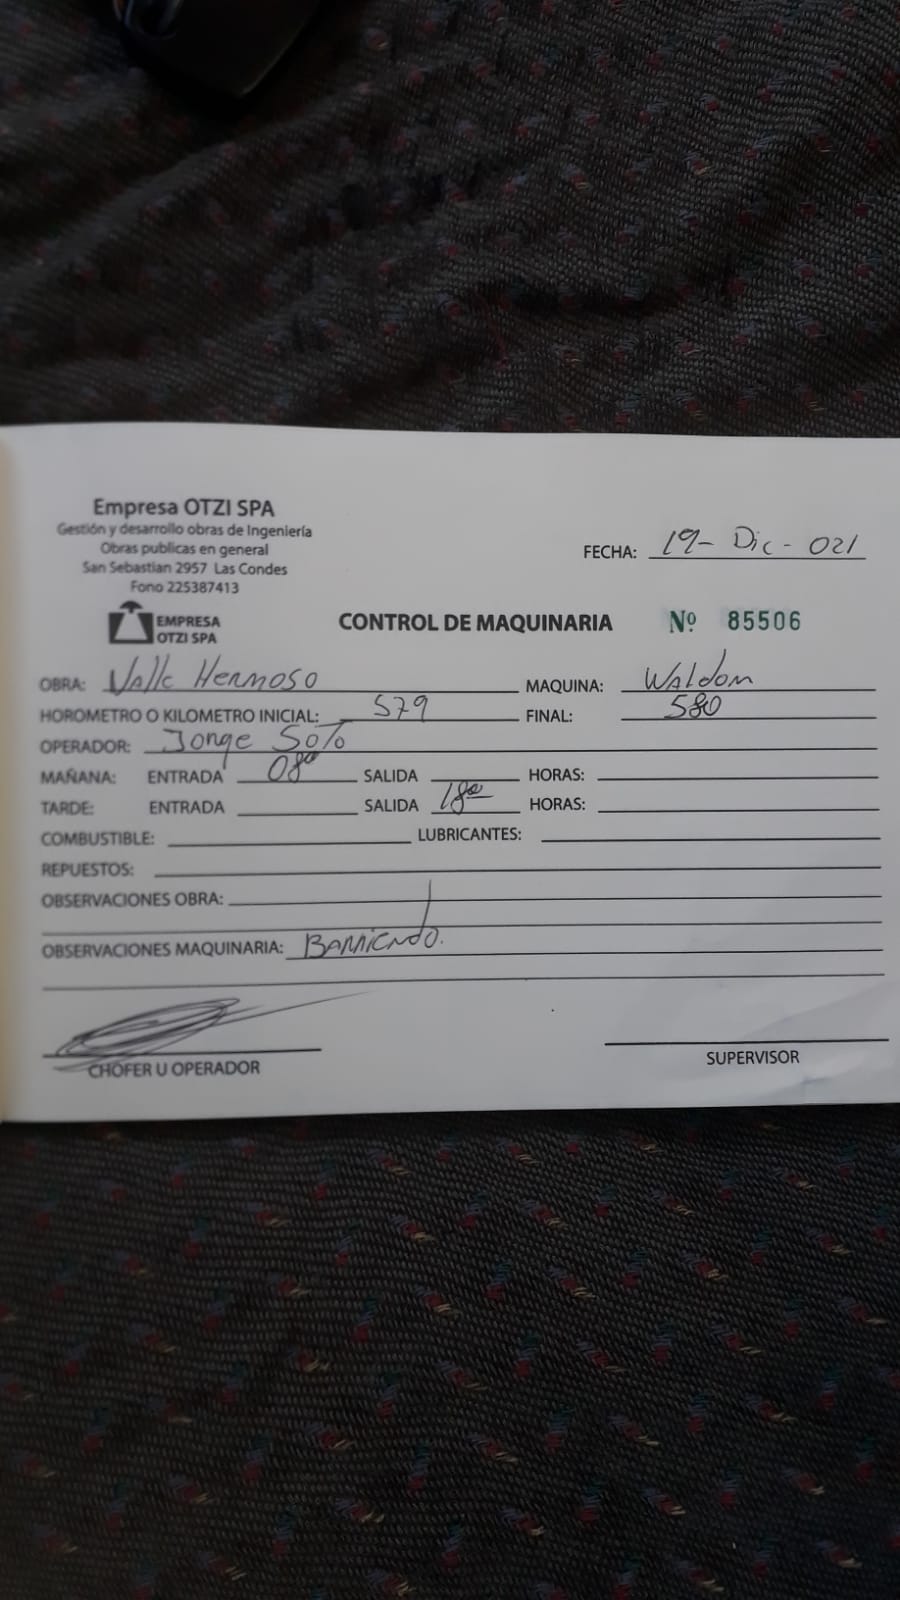 Empresa OTZI SPA
Gestión y desarrollo obras de Ingeniería
Obras publicas en general
San Sebastian 2957 Las Condes
Fono 225387413
FECHA: 19- Dic - 021
EMPRESA
OTZI SPA
CONTROL DE MAQUINARIA Nº 85506
OBRA: Valle Hermoso MAQUINA: Waldom
HOROMETRO O KILOMETRO INICIAL: 579 FINAL: 580
OPERADOR: Jorge Soto
MAÑANA: ENTRADA 08⁰⁰ SALIDA HORAS:
TARDE: ENTRADA SALIDA 18⁰⁰ HORAS:
COMBUSTIBLE: LUBRICANTES:
REPUESTOS:
OBSERVACIONES OBRA:
OBSERVACIONES MAQUINARIA: Barriendo.
CHOFER U OPERADOR SUPERVISOR